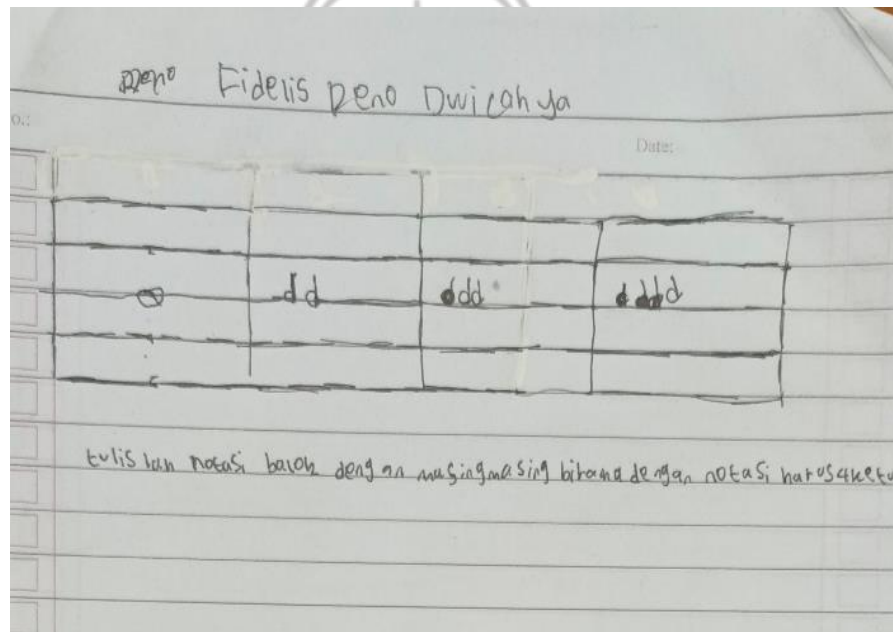 Deno Fidelis Deno Dwicahya
o.:
Date:
tulislan notasi balok dengan masingmasing birama dengan notasi harus4ketu